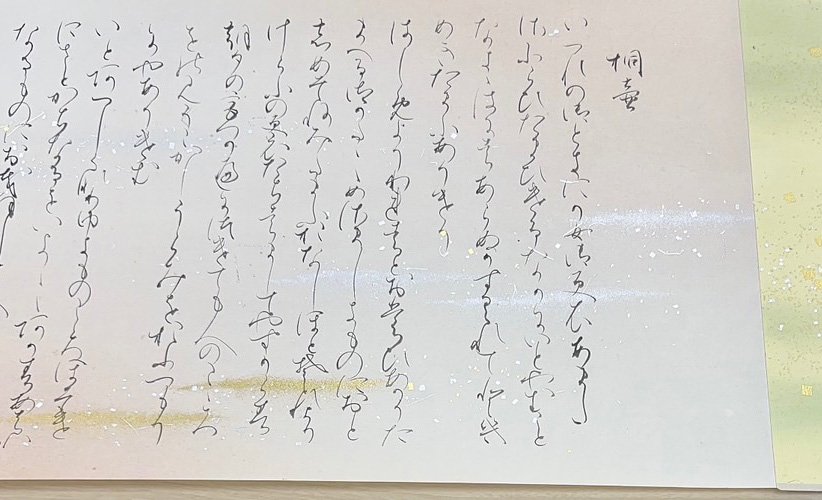 桐壺
いつれの御ときにか女御更衣あまた
さふらひたまひけるなかにいとやむこと
なききはにはあらぬかすくれて時
めきたまふありけり
はしめよりわれはとおもひあかりた
まへる御かた〱めさましきものにおと
しめそねみたまふおなしほとそれより
けらふの更衣たちはましてやすからす
朝夕の宮つかへにつけても人のこゝろ
をのみうこかしうらみをおふつもり
にやありけむ
いとあつしくなりゆきものこゝろほそけ
にさとかちなるをいよ〱あかすあはれ
なるものにおもほして